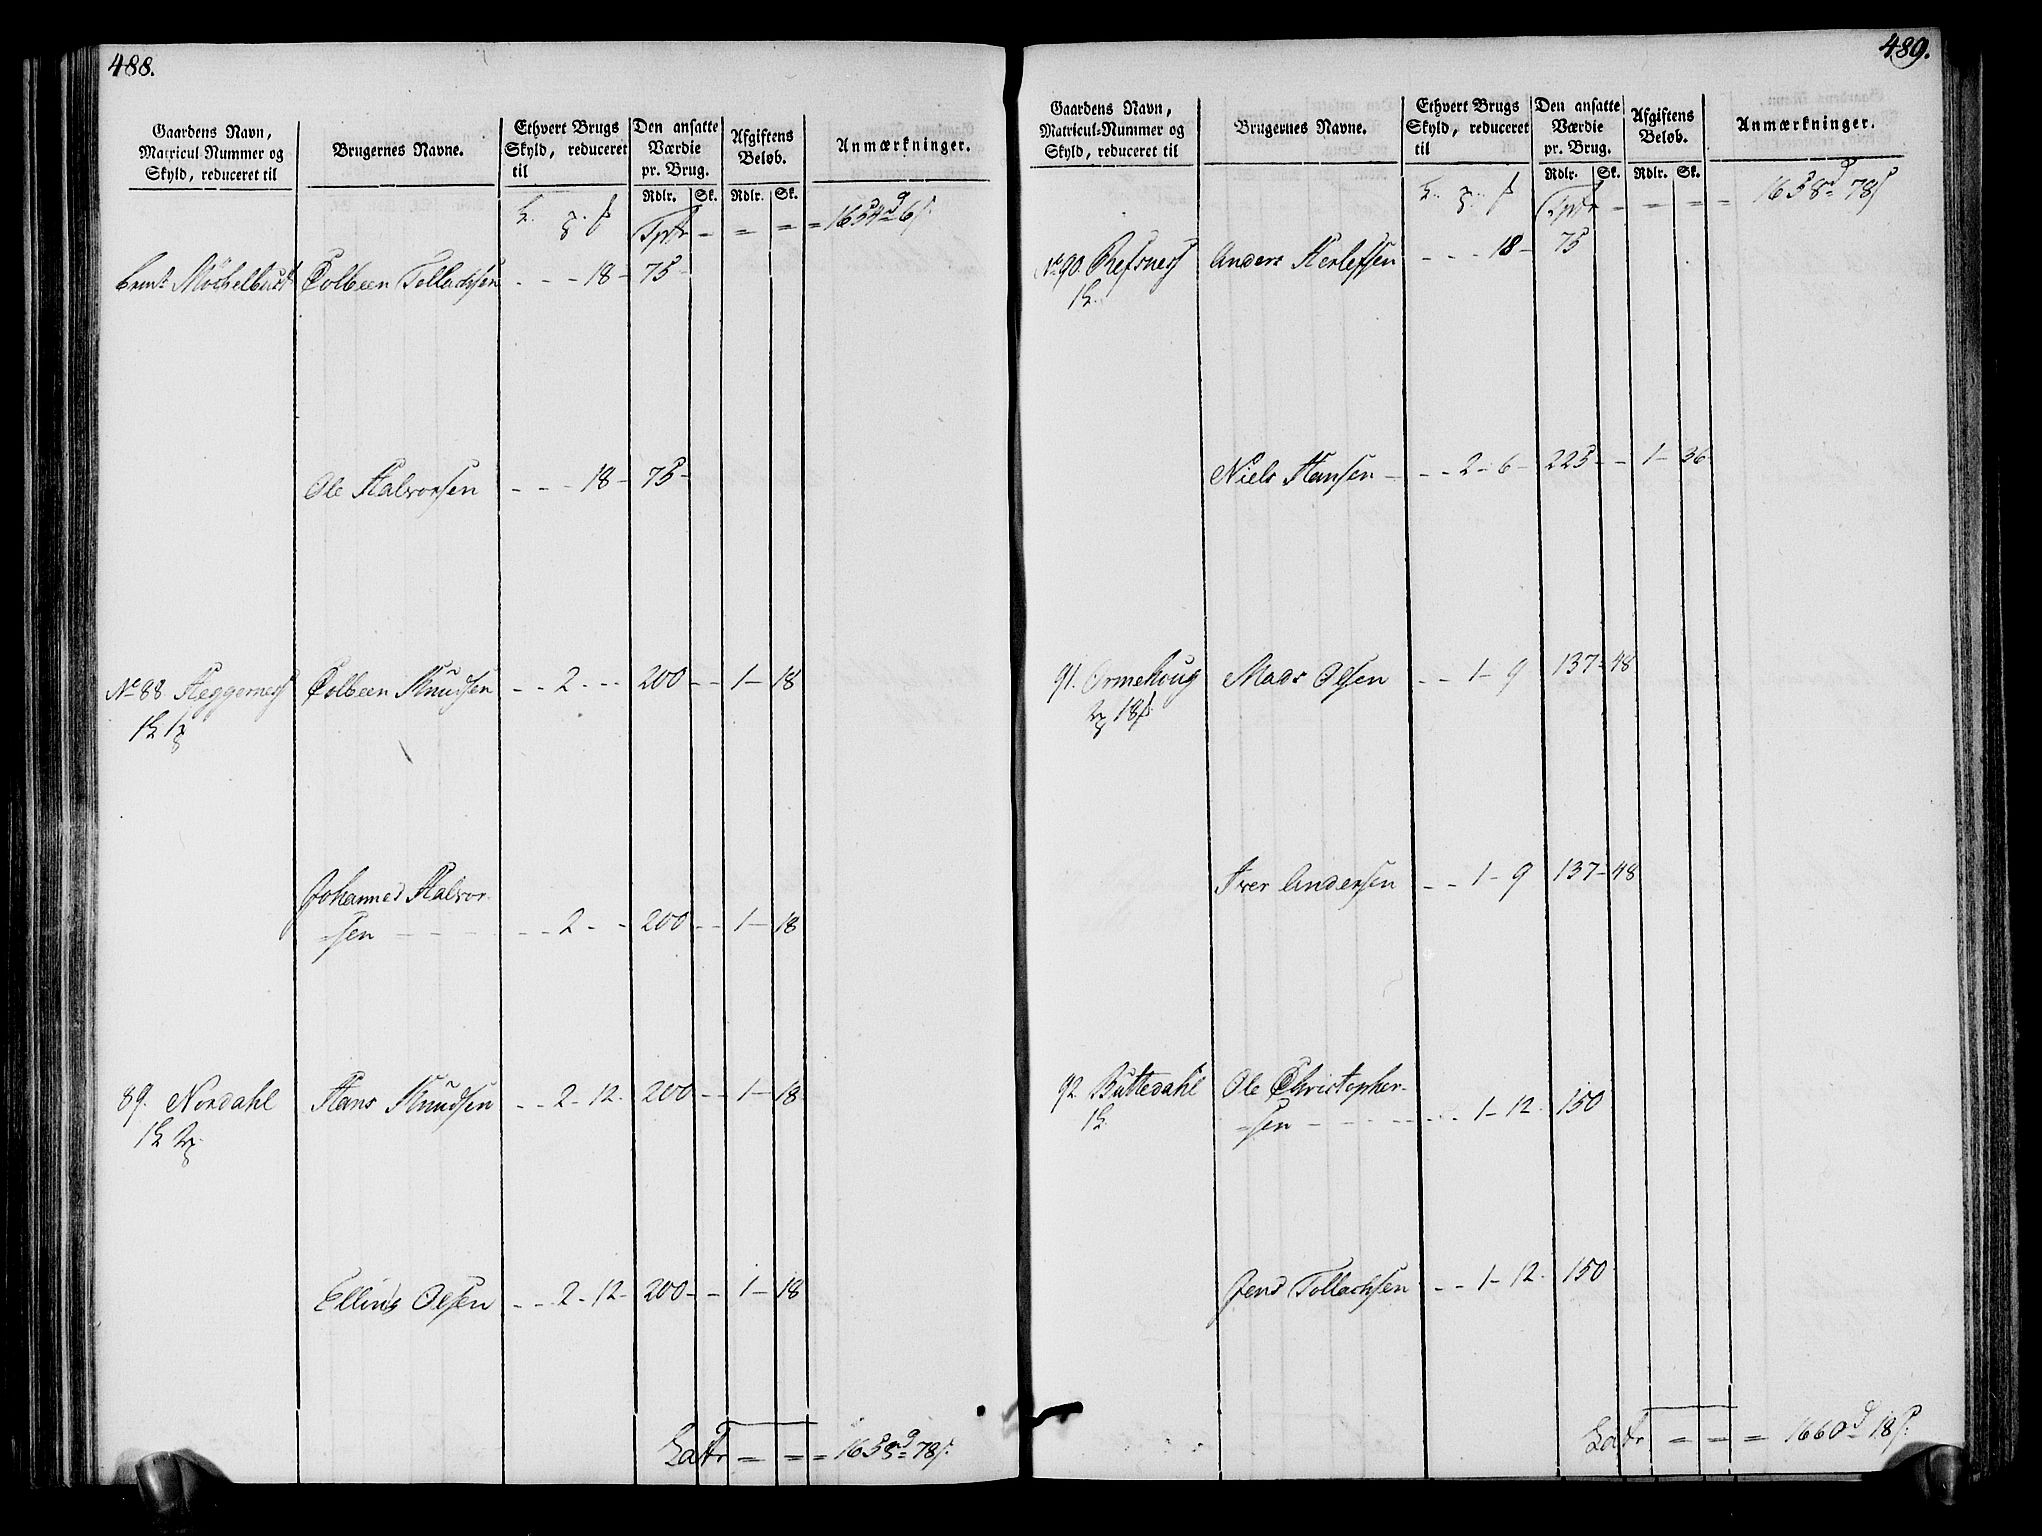 488.
Gaardens Navn, Matricul-Nummer og Skyld, reduceret til
Brugernes Navne.
Ethvert Brugs Skyld, reduceret til
Den ansatte Værdie pr. Brug.
Afgiftens Beløb.
Anmærkninger.
Rdlr. Sk. Rdlr. Sk.
Tpt = = = = 1654 d 6 s.
Colbeen Tollachsen - - - 18 - 75 -
Ole Halvorsen - - - 18 - 75 -
No 88. Heggernes Colbeen Knudsen - - 2 - - - 200 - - 1 - 18
Johannes Halvor-
-sen - - - - - 2 - - 200 - - 1 - 18
89. Nordahl Hans Knudsen - - 2 - 12 - 200 - - 1 - 18
Ellins Olsen - - 2 - 12 - 200 - - 1 - 18
Latr = = = 1658 d 78 s.
489.
Gaardens Navn, Matricul-Nummer og Skyld, reduceret til
Brugernes Navne.
Ethvert Brugs Skyld, reduceret til
Den ansatte Værdie pr. Brug.
Afgiftens Beløb.
Anmærkninger.
Rdlr. Sk. Rdlr. Sk.
Tptr = = = = 1658 d 78 s
No 90. Refsnes Anders Herlefsen - - - 18 - 75
Niels Hansen - - - 2 - 6 - 225 - - 1 - 36
91. Ormehoug Mads Olsen - - 1 - 9 137 - 48
Iver Andersen - - 1 - 9 137 - 48
92. Buttedahl Ole Christopher-
-sen - - - - - 1 - 12 - 150
Jens Tollachsen - - 1 - 12 - 150
Latr = = = 1660 d 18 s.